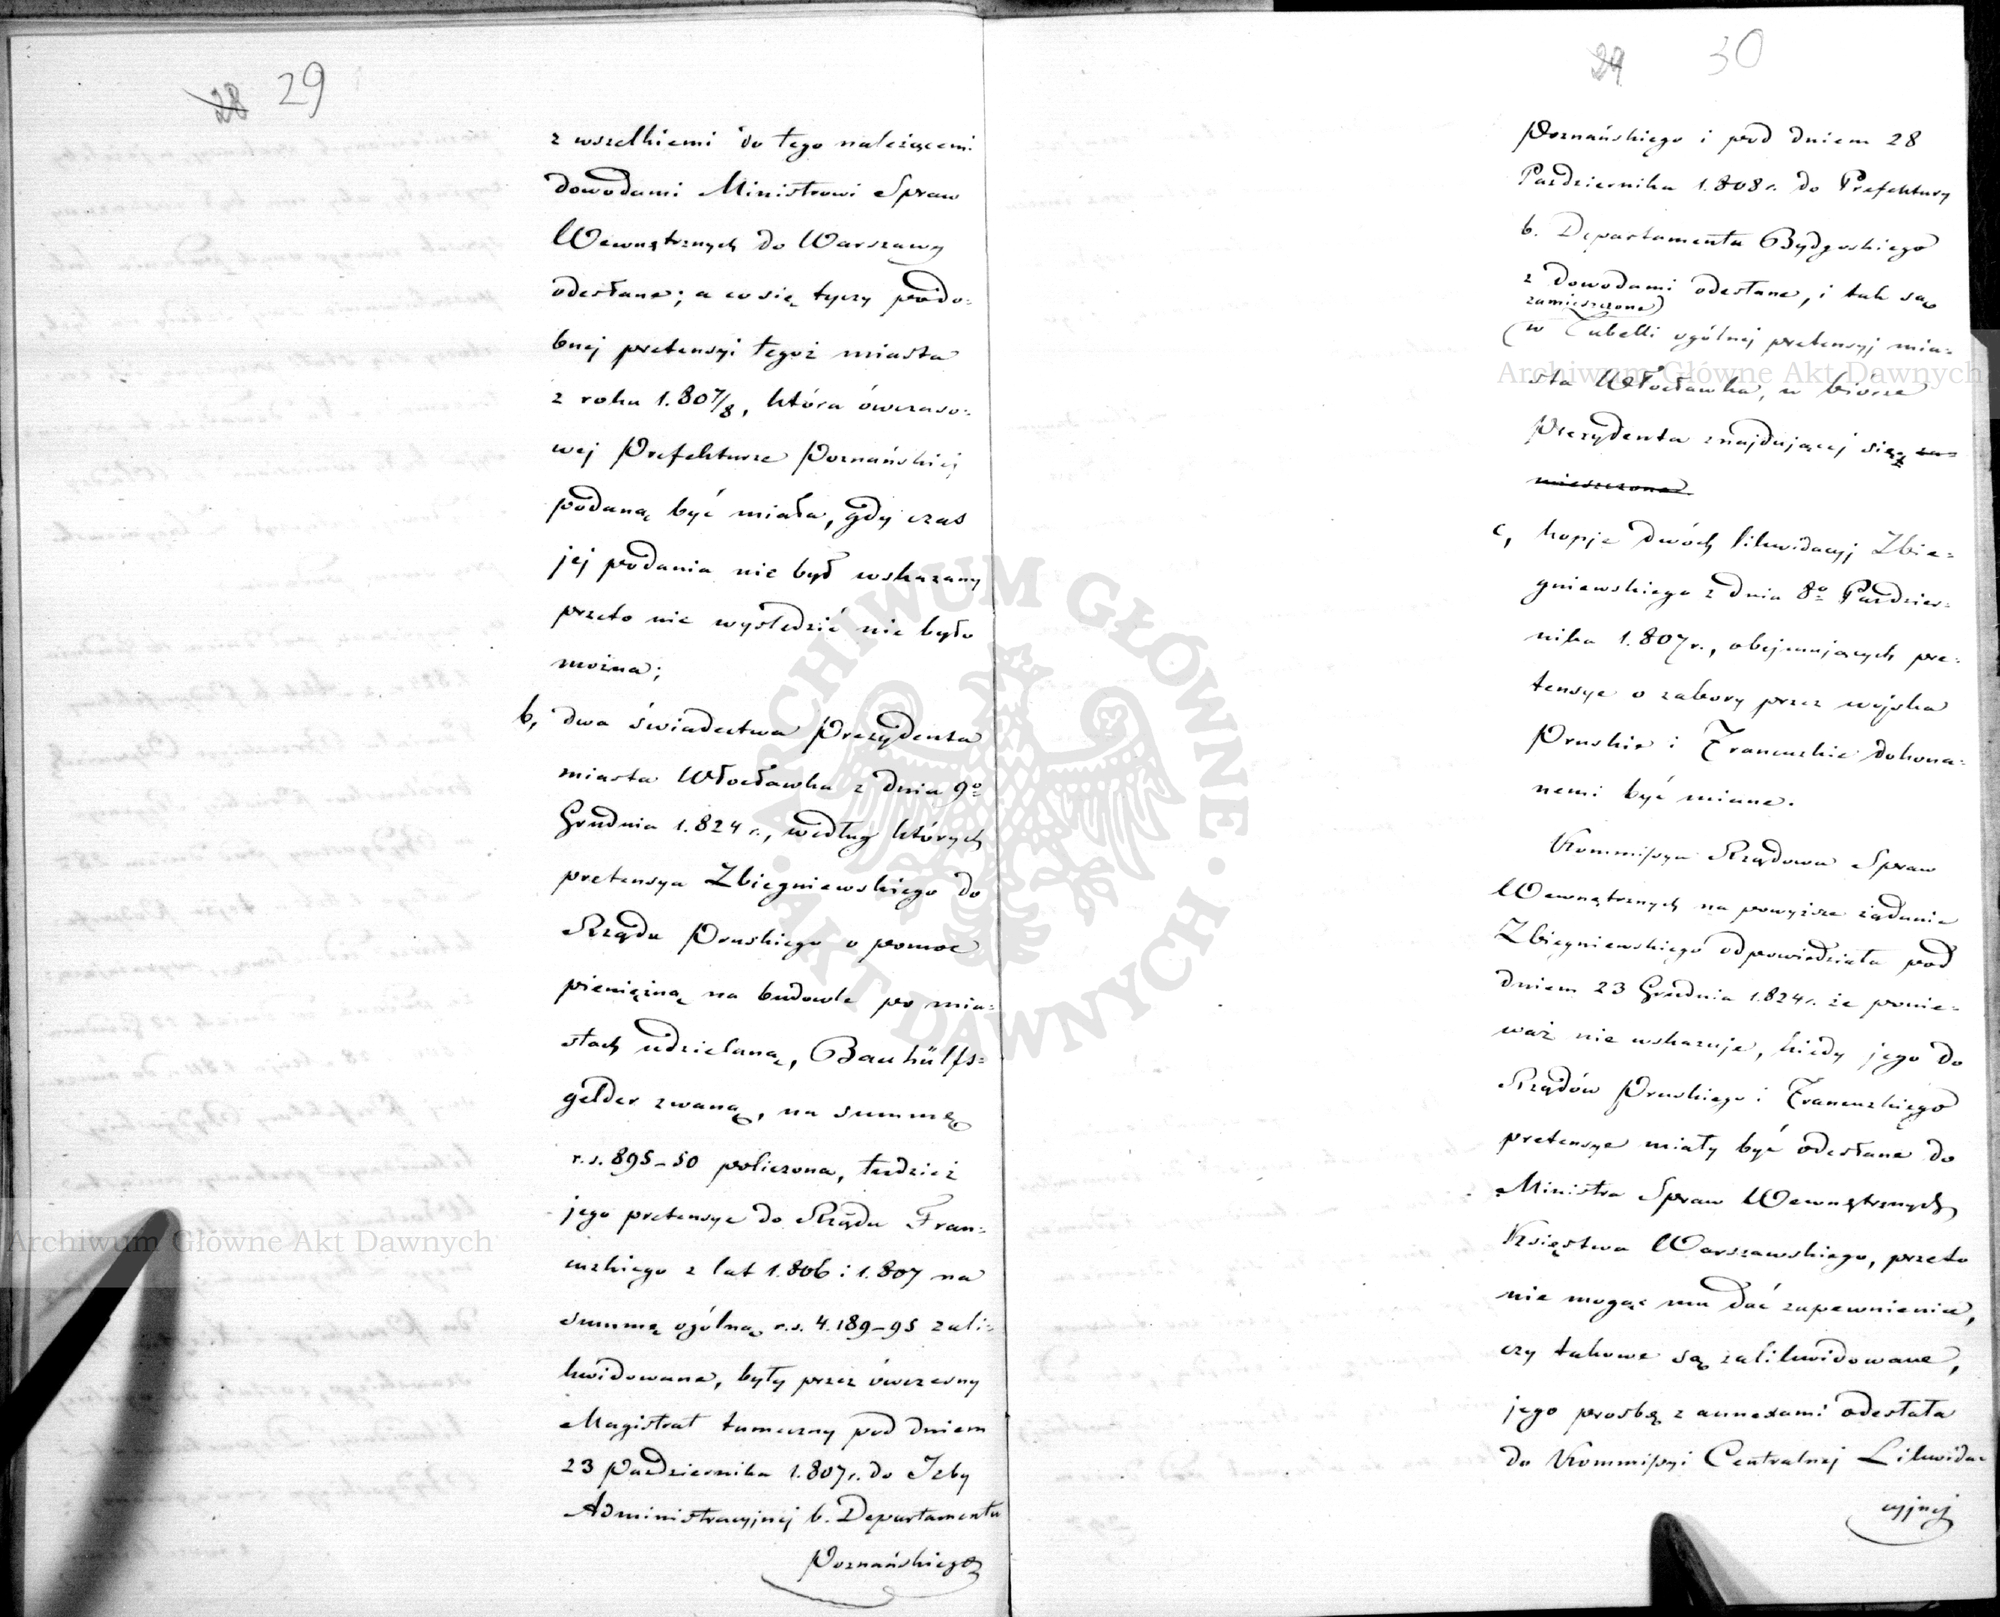 28 29
z wszelkiemi do tego należącemi
dowodami Ministrowi Spraw
Wewnętrznych do Warszawy
odesłane; a co się tyczy podo-
bnej pretensyi tegoż miasta
z roku 1.807/8, która ówczaso-
wej Prefekturze Poznańskiej
podaną być miała, gdy czas
jej podania nie był wskazany
przeto nic wyśledzić nie było
można;
b, dwa świadectwa Prezydenta
miasta Włocławka z dnia 9o
Grudnia 1.824 r., według których
pretensya Zbiegniewskiego do
Rządu Pruskiego o pomoc
pieniężną na budowle po mia-
stach udzielaną, Bauhülfs-
gelder zwaną, na summę
r.s. 895-50 policzona, tudzież
jego pretensye do Rządu Fran-
cuzkiego z lat 1.806 i 1.807 na
summę ogólną r.s. 4.189-95 zali-
kwidowane, były przez ówczesny
Magistrat tameczny pod dniem
23 Października 1.807 r. do Izby
Administracyjnej b. Departamentu
Poznańskiego
29 30
Poznańskiego i pod dniem 28
Października 1.808 r. do Prefektury
b. Departamentu Bydgoskiego
z dowodami odesłane, i tak są
zamieszczone
w Tabelli ogólnej pretensyj mia-
sta Włocławka, w biórze
Prezydenta znajdującej się za-
mieszczone
c, kopje dwóch likwidacyj Zbie-
gniewskiego z dnia 8o Paździer-
nika 1.807 r., obejmujących pre-
tensye o zabory przez wojska
Pruskie i Francuzkie dokona-
nemi być miane.
Kommissya Rządowa Spraw
Wewnętrznych na powyższe żądanie
Zbiegniewskiego odpowiedziała pod
dniem 23 Grudnia 1.824 r. że ponie-
waż nie wskazuje, kiedy jego do
Rządów Pruskiego i Francuzkiego
pretensye miały być odesłane do
Ministra Spraw Wewnętrznych
Księstwa Warszawskiego, przeto
nie mogąc mu dać zapewnienia,
czy takowe są zalikwidowane,
jego prośbę z annexami odesłała
do Kommissyi Centralnej Likwida-
cyjnej
ARCHIWUM GŁÓWNE
AKT DAWNYCH
Archiwum Główne Akt Dawnych
Archiwum Główne Akt Dawnych